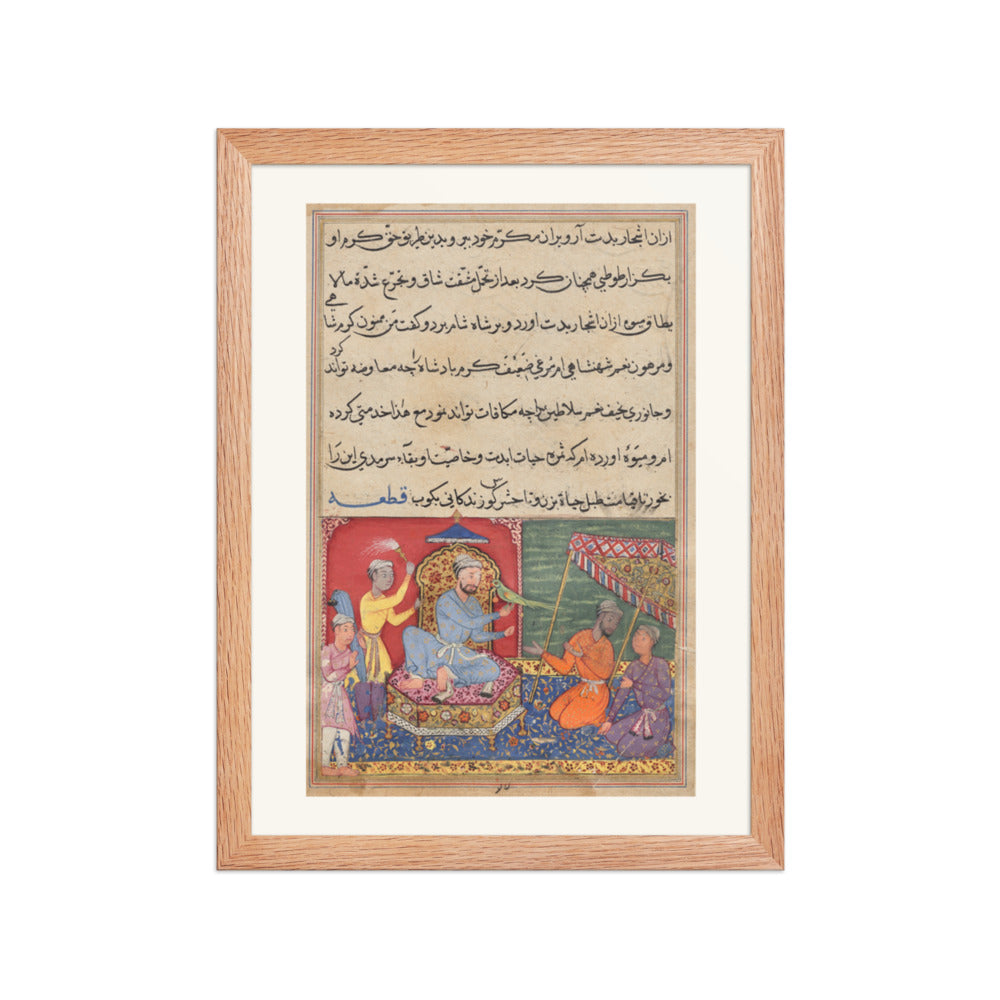 ازان اشجار بدست آرو بران مکرم خود ببر و بدین طریق حق کرم او
بکزار طوطی همچنان کرد بعد از تحمل مشقت شاق و تجرع شدة مالا
بطاق میوه ازان اشجار بدست اورد و بر شاه شام برد و کفت من ممنون کرم شاهی
و مرهون نعم شهنشاهی ام مرغی ضعیف کرم بادشاه را چه معاوضه تواند کرد
و جانوری نحیف نعم سلاطین را چه مکافات تواند نمود مع هذا خدمتی کرده
ام و میوۀ اورده ام که ثمره حیات ابدست و خاصیتا و بقاء سرمدی این را
بخور تا قیامت طبل حیاة بزن و تا حشر کوس زندکانی بکوب قطعه